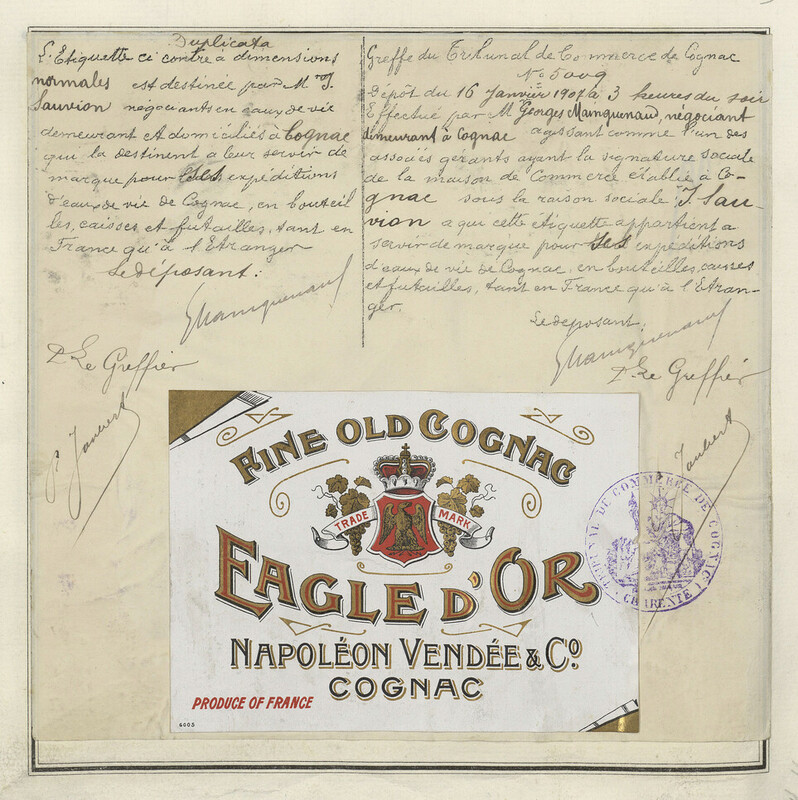 Duplicata
L'Etiquette ci contre à dimensions
normales est destinée par M J.
Sauvion négociants en eaux de vie
demeurant et domiciliés à Cognac
qui la destinent à leur servir de
marque pour ses expéditions
d'eaux de vie de Cognac, en bouteil
les, caisses et futailles, tant en
France qu'à l'Etranger
Le déposant:
GMainguenaud
P. Le Greffier
P. Jaubert
Greffe du Tribunal de Commerce de Cognac
No 5009
Dépôt du 16 Janvier 1907 à 3 heures du soir
Effectué par M Georges Mainguenaud, négociant
demeurant à Cognac agissant comme l'un des
associés gérants ayant la signature sociale
de la maison de Commerce établie à Co-
gnac sous la raison sociale "J. Sau-
vion a qui cette étiquette appartient a
servir de marque pour ses expéditions
d'eaux de vie de Cognac, en bouteilles, caisses
et futailles, tant en France qu'à l'Etran-
ger.
Le déposant,
GMainguenaud
P. Le Greffier
Jaubert
FINE OLD COGNAC
TRADE MARK
EAGLE D'OR
NAPOLÉON VENDÉE & Cº
COGNAC
PRODUCE OF FRANCE
6003
TRIBUNAL DE COMMERCE DE COGNAC
CHARENTE